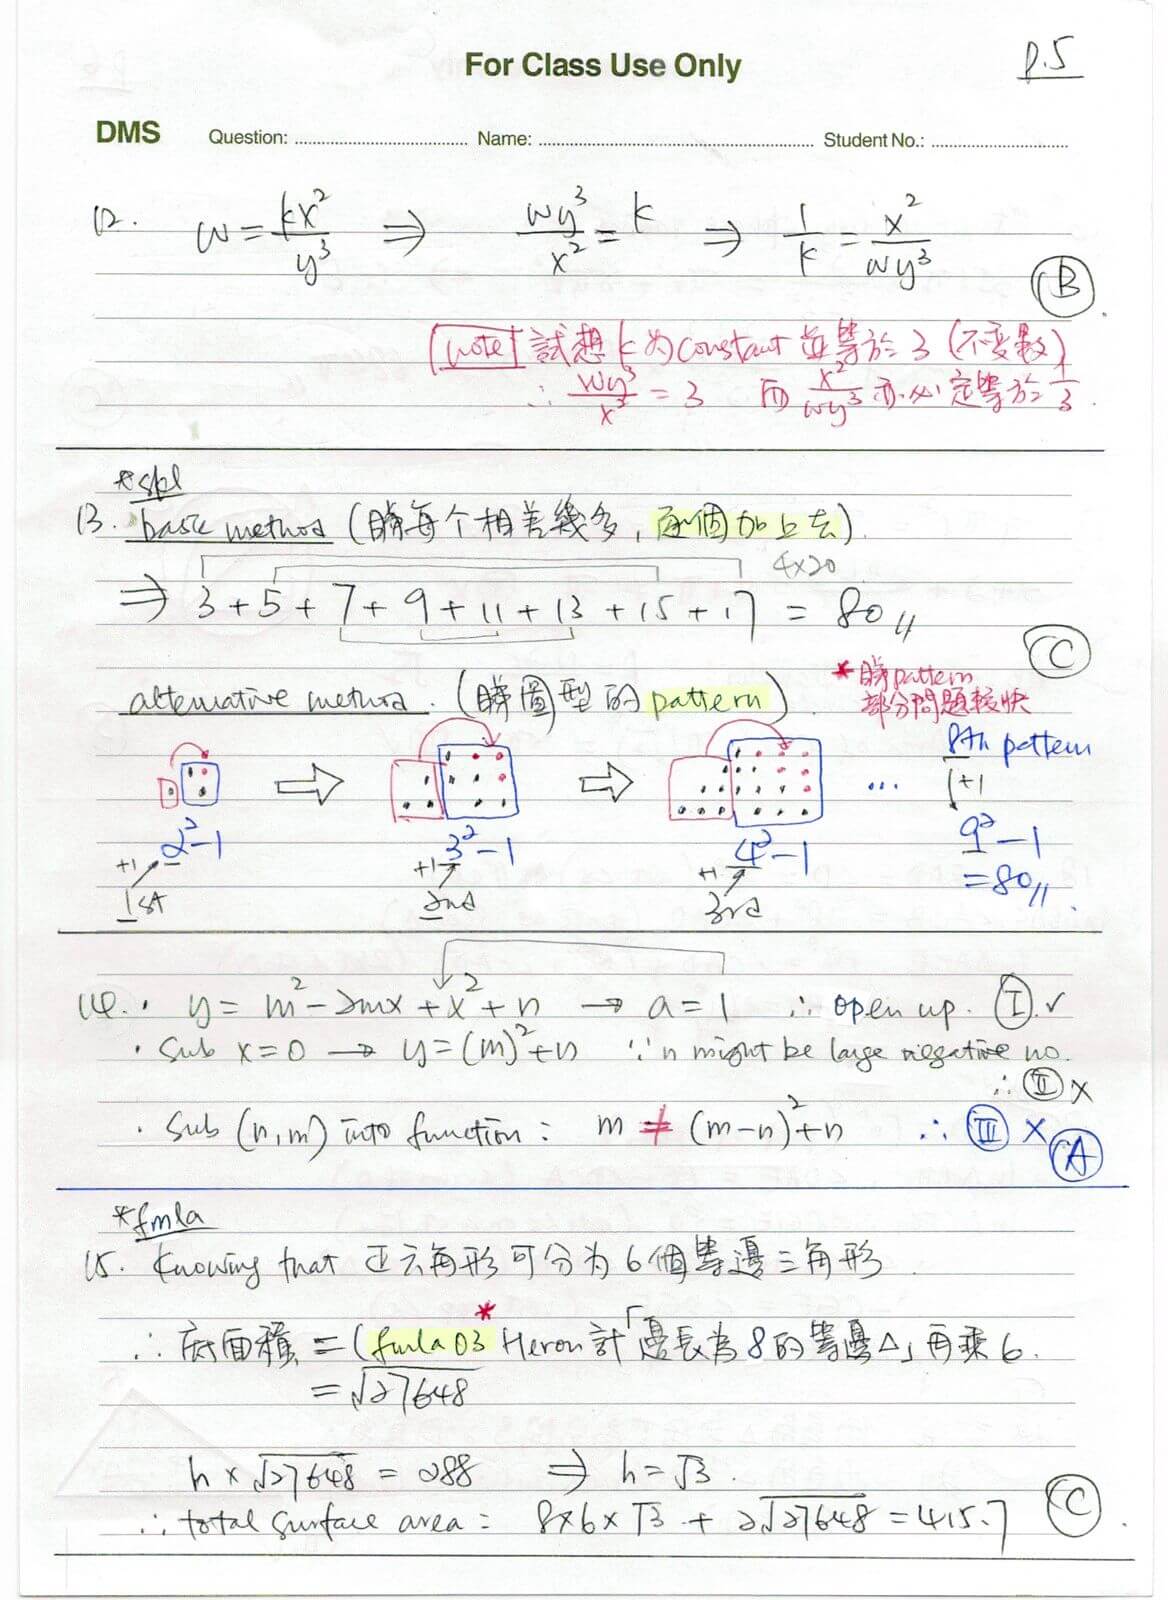 For Class Use Only
p.5
DMS Question: Name: Student No.:
12. w = kx²/y³ ⇒ wy³/x² = k ⇒ 1/k = x²/wy³
B
[note] 試想 k 为 constant 並等於 3 (不变數)
∴ wy³/x² = 3 而 x²/wy³ 亦必定等於 1/3.
*skl
13. basic method (睇每个相差幾多, 逐個加上去)
4×20
⇒ 3 + 5 + 7 + 9 + 11 + 13 + 15 + 17 = 80
C
alternative method. (睇圖型的 pattern)
* 睇 pattern
部分問題較快
8th pattern
⇒ ⇒ ... +1
2²-1 3²-1 4²-1 9²-1
+1 +1 +1 =80
1st 2nd 3rd
14. · y = m² - 2mx + x² + n → a = 1 ∴ open up. I ✓
· Sub x = 0 → y = (m)² + n ∵ n might be large negative no.
∴ II ×
· Sub (n, m) into function : m ≠ (m-n)² + n ∴ III ×
A
*fmla
15. Knowing that 正六角形可分为 6 個等邊三角形
*
∴ 底面積 = (fmla 03 Heron 計「邊長為 8 的等邊△」再乘 6.
= √27648
h × √27648 = 288 ⇒ h = √3.
∴ total surface area = 8×6×√3 + 2√27648 = 415.7
C